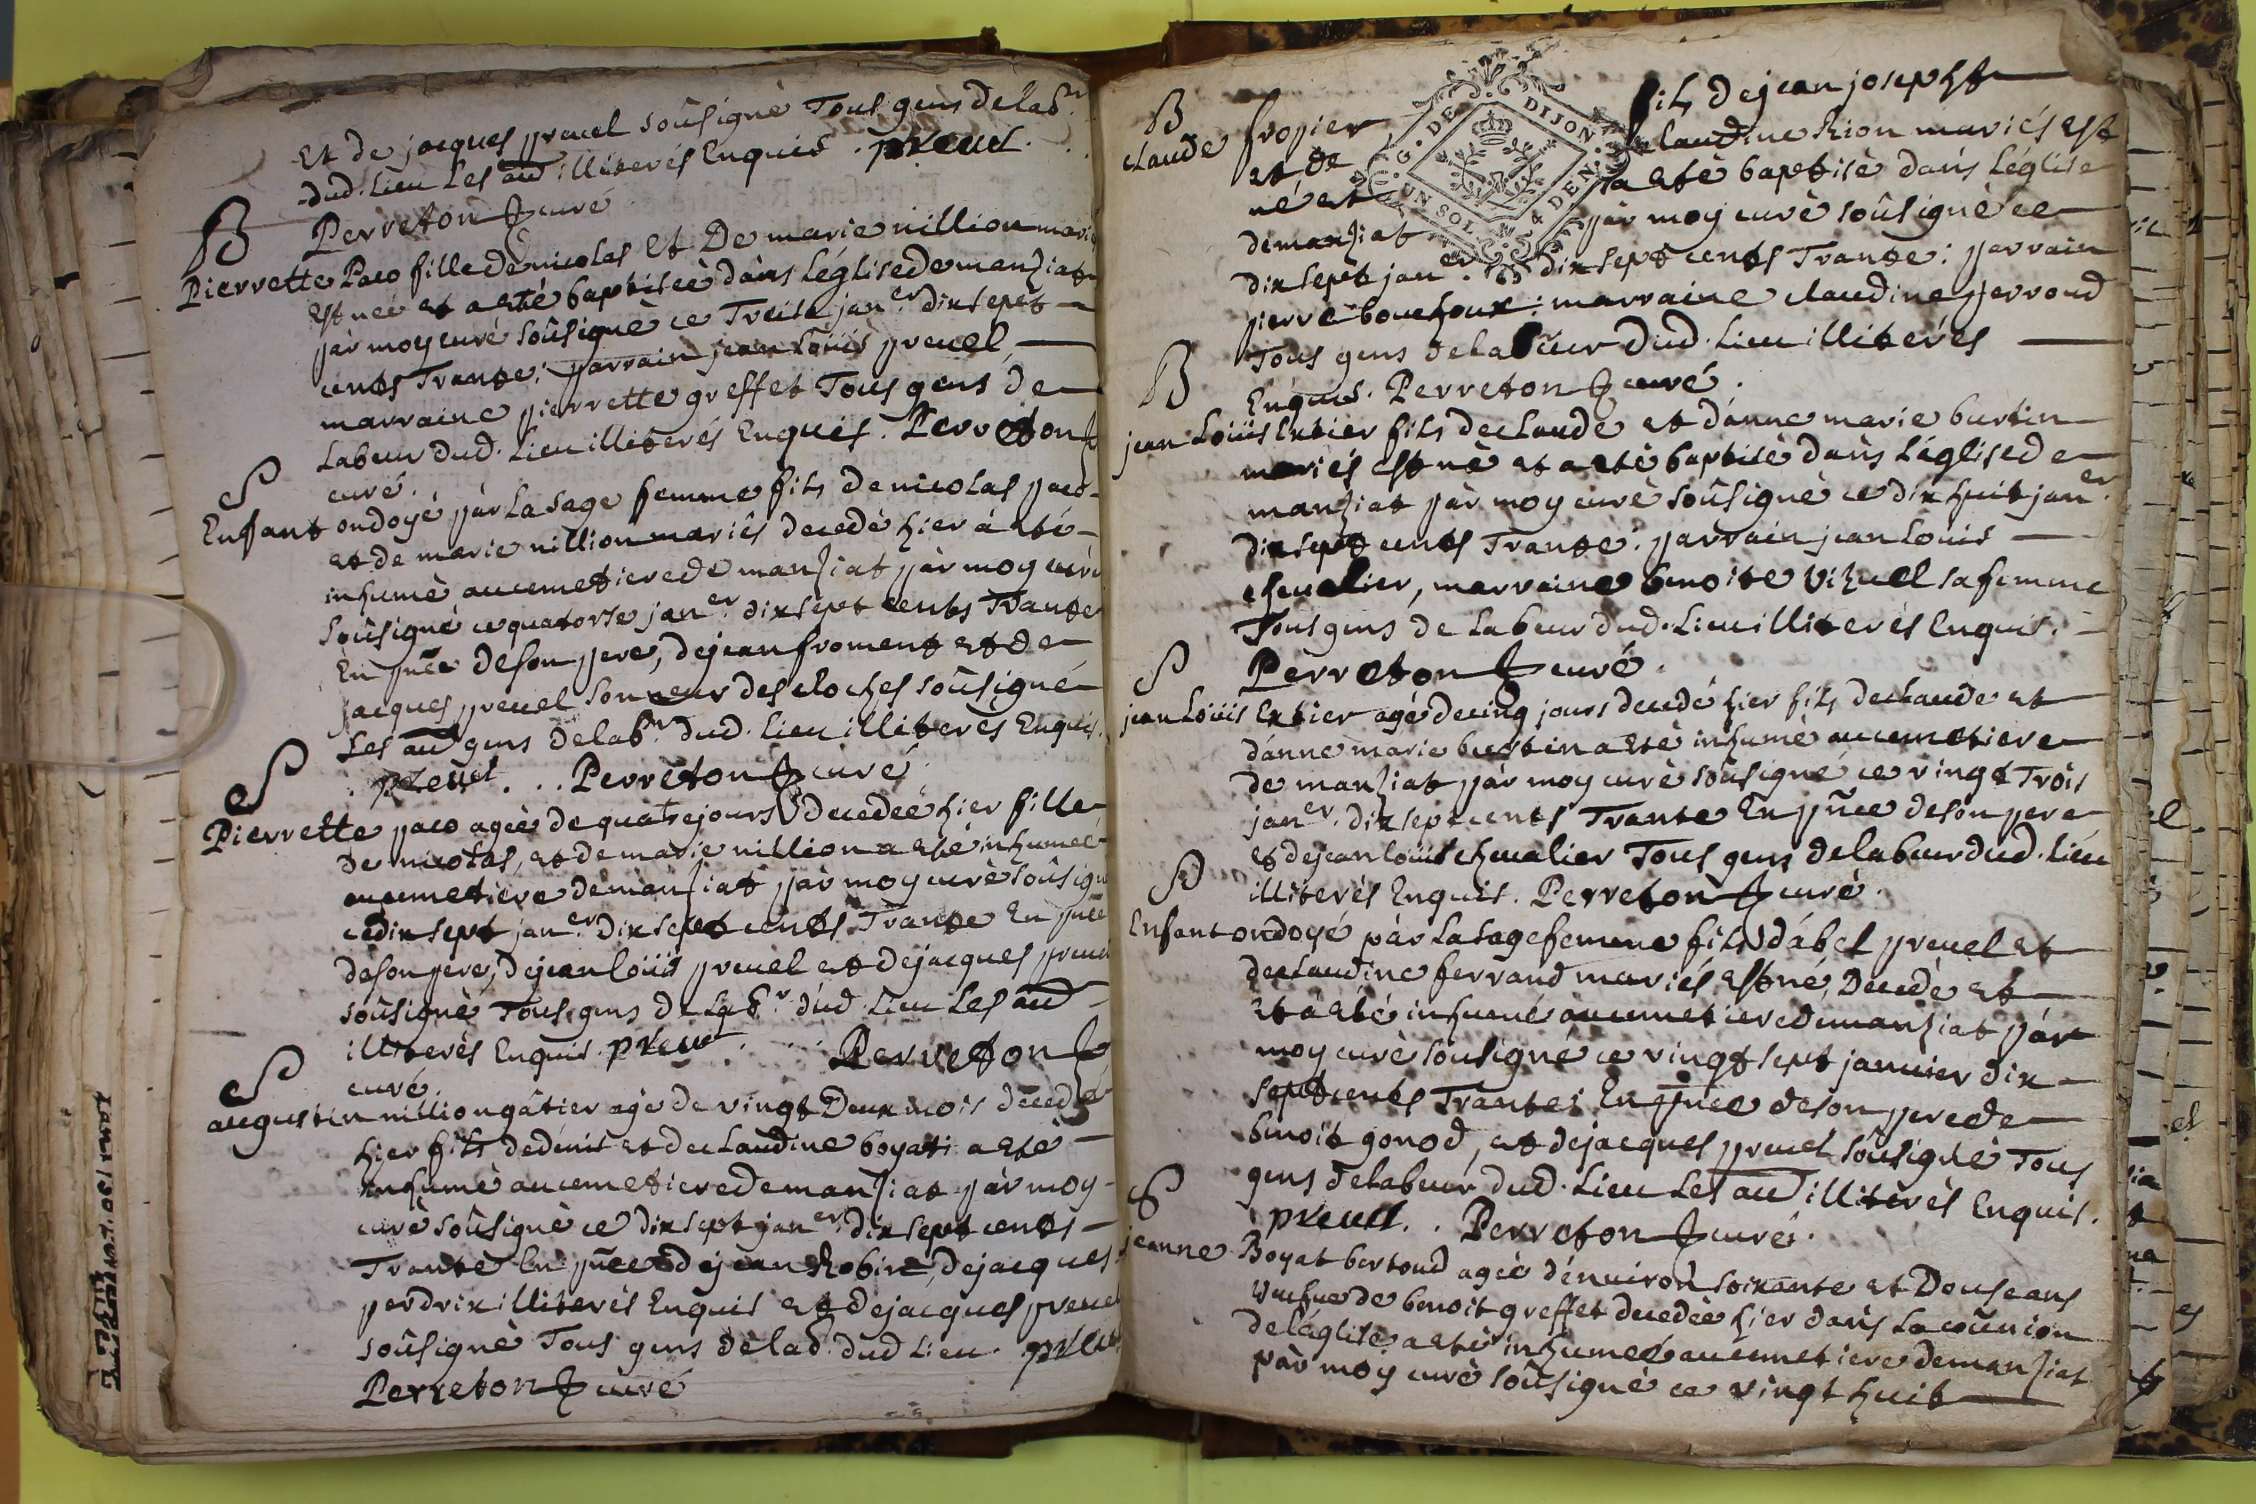 Et de jacques preuel soûsignè Tous gens de lab.r
dud. Lieu Les aũ illiterés Enquis. preuel.
Perreton curé
B
Pierrette Paco fille de nicolas et De marie nillion mariés
Est neé et a eté baptiseé dans L'église de manziat
pàr moy curé soûsignè ce Treise jan.er dixsept
cents Trante; parrain jean Loüis preuel
marraine pierrette greffet Tous gens de
Labeur dud. Lieu illiterés Enquis. Perreton
curé.
S
Enfant ondoyé pàr La sage femme fils de nicolas paco
et de marie nillion mariés decedè hier à eté
inhumè au cemetiere de manziat pàr moy curé
Soûsigné ce quatorse jan.er dixsept cents Trante
En pñce de son pere, de jean froment et de
jacques preuel Sonneur des cloches soûsigné
Les aũ gens de lab.r dud. lieu illiterés Enquis.
preuel. . . Perreton curé
S
Pierrette paco ageè de quatre jours decedeé hier fille
De nicolas, et de marie nillion a eté inhumeé
au cemetiere de manziat pàr moy curè soûsigné
ce dixsept jan.er dixsept cents Trante En pñce
de son pere, de jean loüis preuel et de jacques preuel
soûsigné Tous gens de Lab.r dud. Lieu Les aũ
illiterés Enquis. preuel. Perreton
curé.
S
augustin nillion gâtier agè de vingt Deux mois decedé
hier fils de denis et de claudine boyat a eté
inhumè au cemetiere de manziat pàr moy
curè soûsignè ce dixsept jan.er dixsept cents
Trante En pñce de jean Robin, de jacques
perdrix illiterés Enquis et de jacques preuel
soûsignè Tous gens de lab. dud. Lieu. preuel
Perreton curé
B
G. DE DIJON
UN SOL 4 DEN.
claude fropier fils de jean joseph
et de claudine Rion mariés est
né et a eté baptisè dans L'église
de manziat pàr moy curè soûsignè ce
dixsept jan.er dixsept cents Trante; parrain
pierre bouchoux; marraine claudine perroud
Tous gens de labeur dud. Lieu illiterés
Enquis. Perreton curé.
B
jean Loüis Extier fils de claude et d'anne marie burtin
mariés est nè et a eté baptisè dans L'église de
manziat pàr moy curè soûsignè ce dixhuit jan.er
dixsept cents Trante; parrain jean Louis
cheualier, marraine benoite Vihuel sa femme
Tous gens de Labeur dud. Lieu illiterés Enquis.
Perreton curé.
S
jean Loüis Extier agè de cinq jours decedé hier fils de claude et
d'anne marie burtin a eté inhumè au cemetiere
de manziat pàr moy curè soûsigné ce vingt Trois
jan.er dixsept cents Trante En pñce de son pere
et de jean loüis cheualier Tous gens de labeur dud. Lieu
illiterés Enquis. Perreton curè.
S
Enfant ondoyé pàr La sage femme fils d'abel preuel et
de claudine ferrand mariés est né, Decedè et
et à eté inhumé au cemetiere de manziat pàr
moy curè soûsigné ce vingt sept januier dix
sept cents Trante; En pñce de son pere de
benoit gonod, et de jacques preuel soûsigné Tous
gens de labeur dud. Lieu Les aũ illiterés Enquis.
preuel. . Perreton curé.
S
jeanne Boyat bertoud ageè d'enuiron soixante et Douse ans
Veufue de benoit greffet decedeè hier dans La coũnion
de L'aglise a eté inhumeé au cemetiere de manziat
pàr moy curé soûsigné ce vingt huit